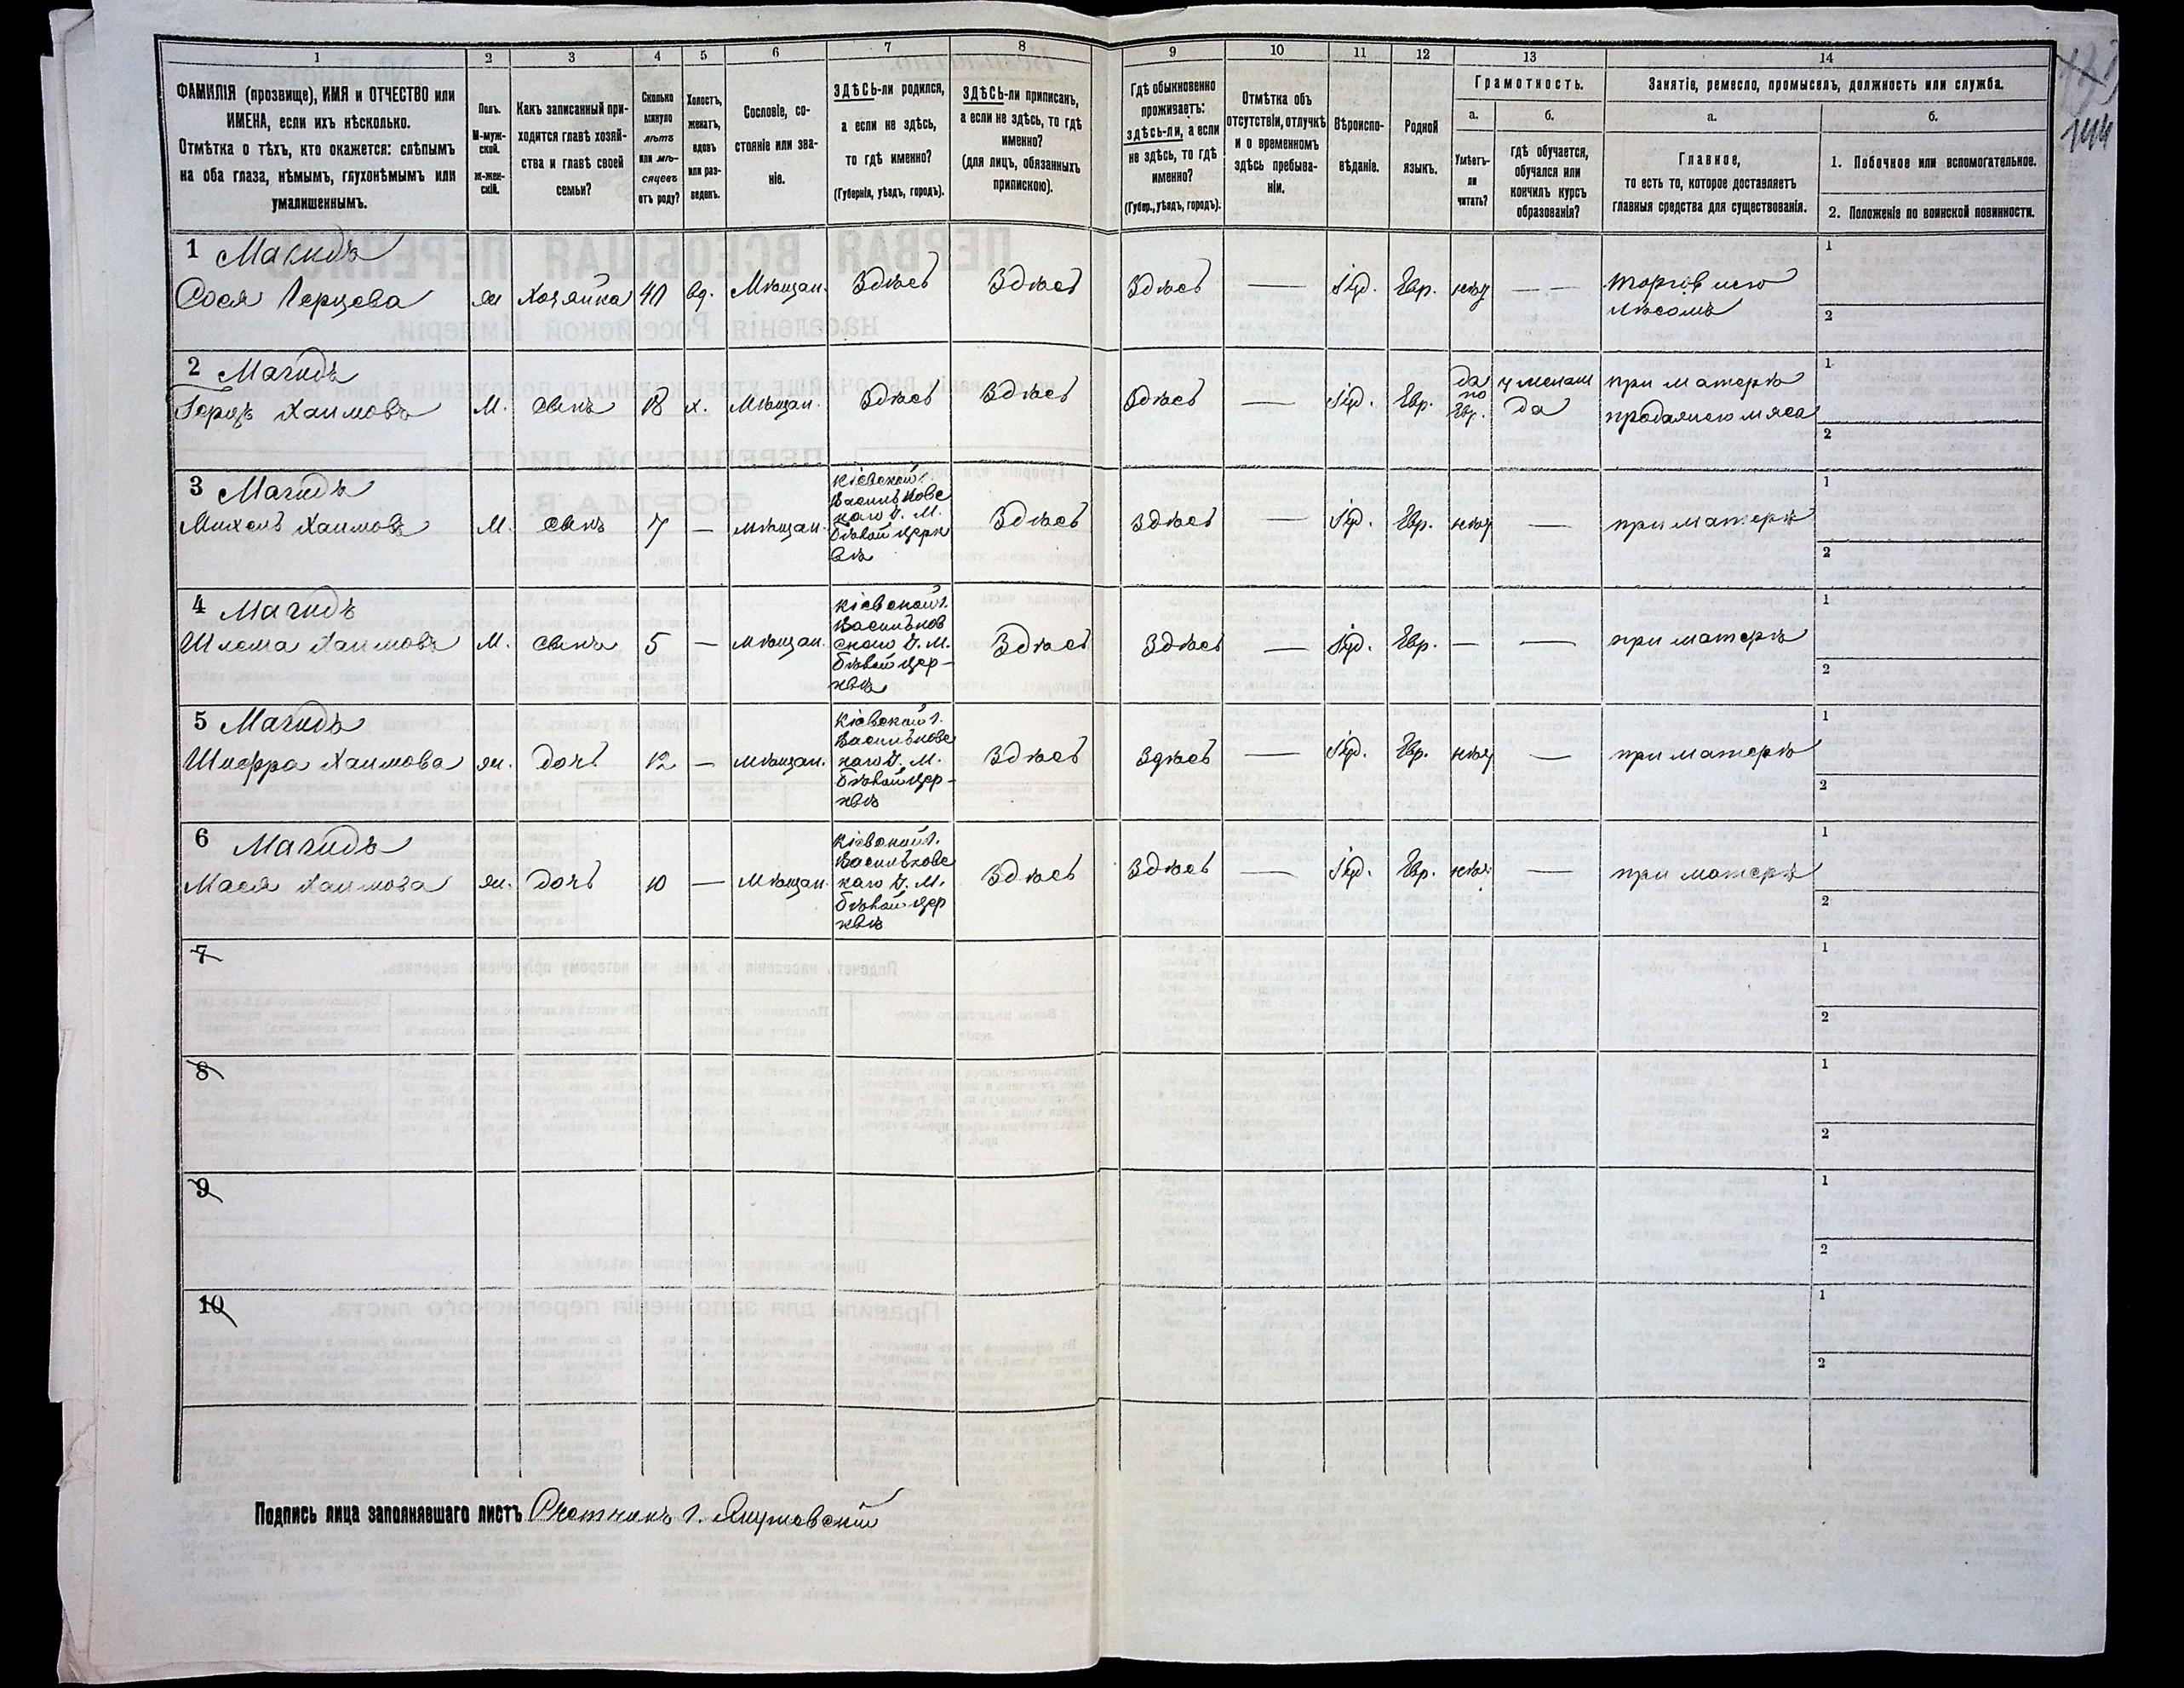 1 2 3 4 5 6 7 8 9 10 11 12 13 14
ФАМИЛІЯ (прозвище), ИМЯ и ОТЧЕСТВО или
ИМЕНА, если ихъ нѣсколько.
Отмѣтка о тѣхъ, кто окажется: слѣпымъ
на оба глаза, нѣмымъ, глухонѣмымъ или
умалишеннымъ.
Полъ.
М-муж-
ской.
Ж-жен-
скій.
Какъ записанный при-
ходится главѣ хозяй-
ства и главѣ своей
семьи?
Сколько
минуло
лѣтъ
или мѣ-
сяцевъ
отъ роду?
Холостъ,
женатъ,
вдовъ
или раз-
веденъ.
Сословіе, со-
стояніе или зва-
ніе.
ЗДѢСЬ-ли родился,
а если не здѣсь,
то гдѣ именно?
(Губернія, уѣздъ, городъ).
ЗДѢСЬ-ли приписанъ,
а если не здѣсь, то гдѣ
именно?
(для лицъ, обязанныхъ
припискою).
Гдѣ обыкновенно
проживаетъ:
здѣсь-ли, а если
не здѣсь, то гдѣ
именно?
(Губер., уѣздъ, городъ).
Отмѣтка объ
отсутствіи, отлучкѣ
и о временномъ
здѣсь пребыва-
ніи.
Вѣроиспо-
вѣданіе.
Родной
языкъ.
Грамотность.
а.
Умѣетъ-
ли
читать?
б.
гдѣ обучается,
обучался или
кончилъ курсъ
образованія?
Занятіе, ремесло, промыселъ, должность или служба.
а.
Главное,
то есть то, которое доставляетъ
главныя средства для существованія.
б.
1. Побочное или вспомогательное.
2. Положеніе по воинской повинности.
144
1 Магидъ
Сося Герцева ж Хозяйка 40 вд. Мѣщан. Здѣсь Здѣсь Здѣсь — Іуд. Евр. нѣт — —
торговлею
мясомъ
1
2
2 Магидъ
Герцъ Хаимовъ М. сынъ 18 х. Мѣщан. Здѣсь Здѣсь Здѣсь — Іуд. Евр.
да
по
Евр.
у мелам
да
при матерѣ
продажею мяса
1
2
3 Магидъ
Михель Хаимовъ М. сынъ 7 — мѣщан.
Кіевской г.
Васильковс
каго У. М.
Бѣлой церк
вѣ
Здѣсь Здѣсь — Іуд. Евр. нѣт — при матерѣ
1
2
4 Магидъ
Шлема Хаимовъ М. сынъ 5 — мѣщан.
Кіевской г.
Васильков
скаго У. М.
Бѣлой цер-
квѣ
Здѣсь Здѣсь — Іуд. Евр. — — при матерѣ
1
2
5 Магидъ
Шифра Хаимова ж. дочь 12 — мѣщан.
Кіевской г.
Васильковс
каго У. М.
Бѣлой цер-
квѣ
Здѣсь Здѣсь — Іуд. Евр. нѣт — при матерѣ
1
2
6 Магидъ
Мася Хаимова ж. дочь 10 — Мѣщан.
Кіевской г.
Васильковс
каго У. М.
Бѣлой цер
квѣ
Здѣсь Здѣсь — Іуд. Евр. нѣт — при матерѣ
1
2
7
1
2
8
1
2
9
1
2
10
1
2
Подпись лица заполнявшаго листъ Счетчикъ Г.